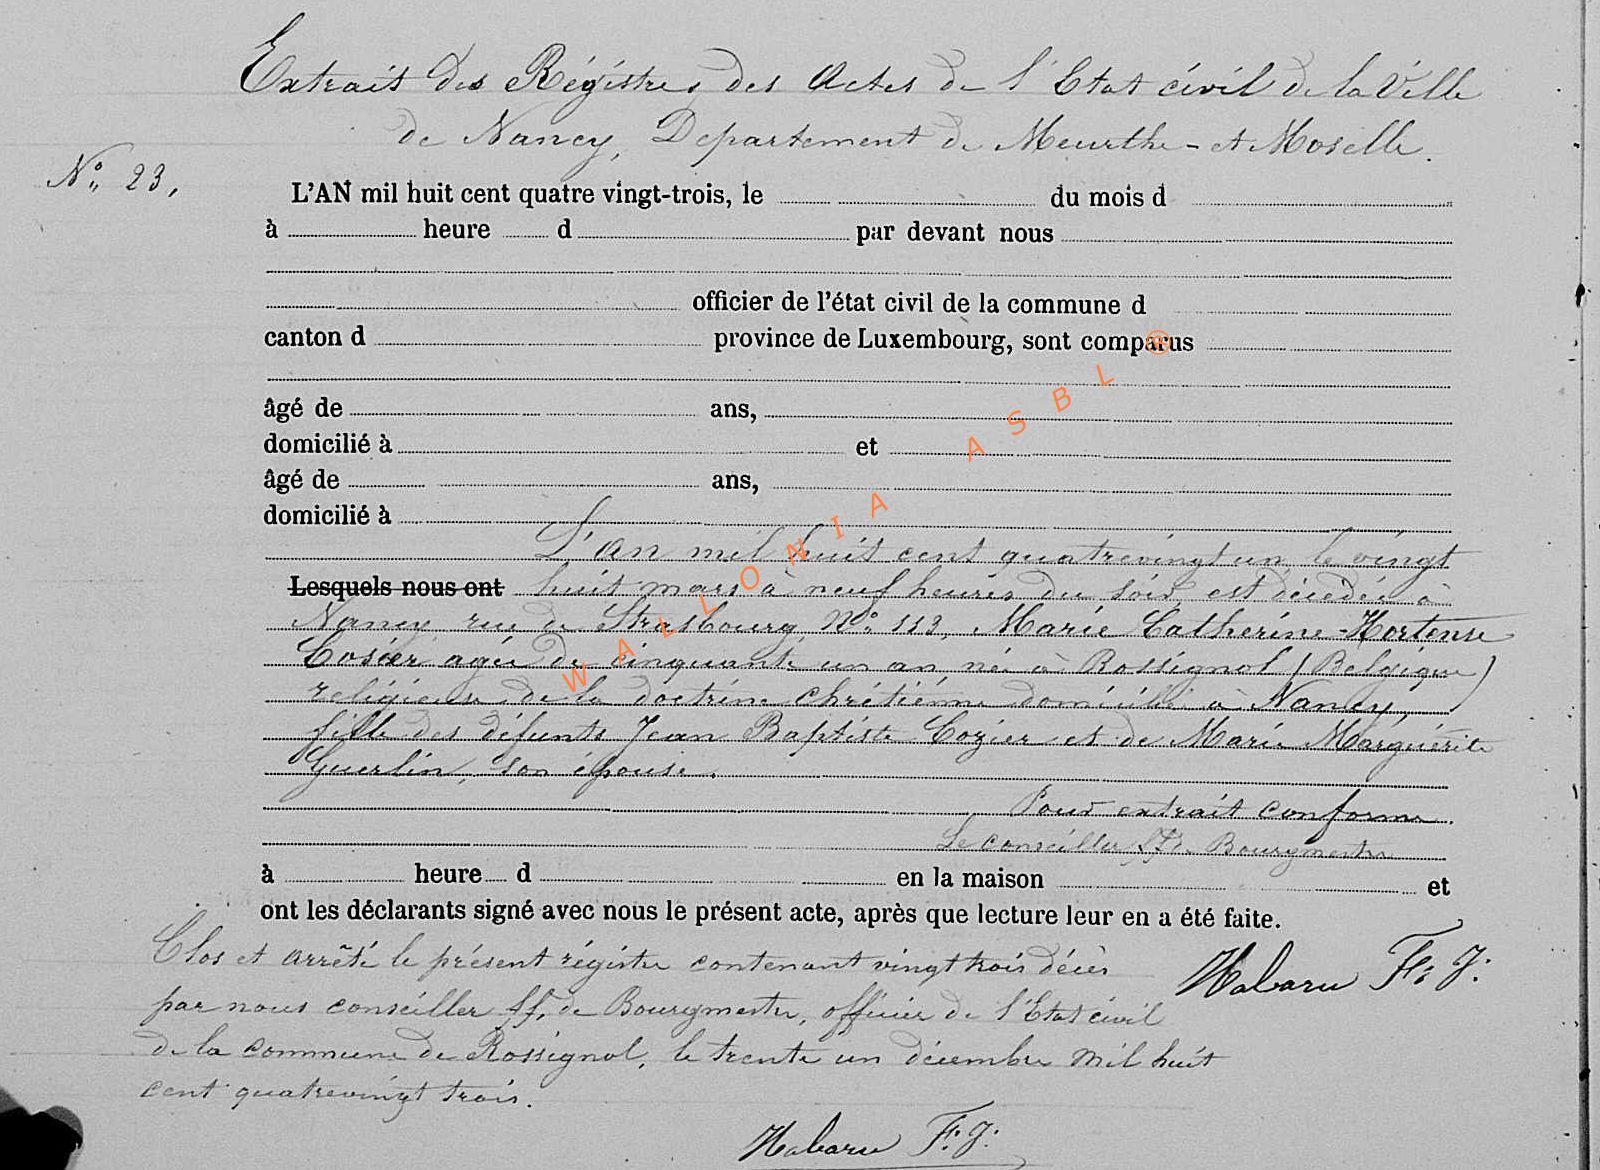 Extrait des Régistres des Actes de l'Etat civil de la Ville
de Nancy, Departement de Meurthe-et Moselle.
N° 23,
L'AN mil huit cent quatre vingt-trois, le du mois d
à heure d par devant nous
officier de l'état civil de la commune d
canton d province de Luxembourg, sont comparus
âgé de ans,
domicilié à et
âgé de ans,
domicilié à
L'an mil huit cent quatrevingt un, le vingt
Lesquels nous ont huit mars à neuf heures du soir est décédée à
Nancy, rue de Strasbourg, N° 113, Marie Catherine-Hortense
Cosier agée de cinquante un an née à Rossignol (Belgique)
religieuse de la doctrine chrétienne domiciliée à Nancy,
fille des défunts Jean Baptiste Cozier et de Marie Marguérite
Guerlin, son épouse.
Pour extrait conforme.
Le conseiller ff de Bourgmestre
à heure d en la maison et
ont les déclarants signé avec nous le présent acte, après que lecture leur en a été faite.
Habaru F: J:
Clos et arrêté le présent régistre contenant vingt trois décès
par nous conseiller ff, de Bourgmestre, officier de l'Etat civil
de la commune de Rossignol, le trente un décembre mil huit
cent quatrevingt trois.
Habaru F: J:
WALLONIA ASBL ®